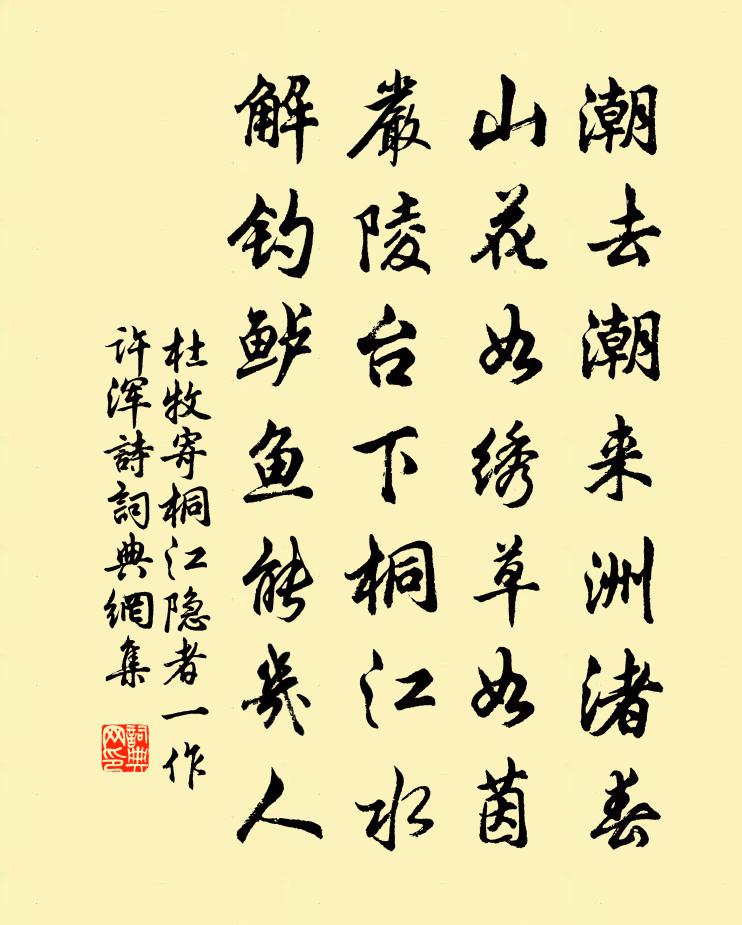 潮去潮来洲渚春
山花如绣草如茵
嚴陵台下桐江水
解钓鲈鱼能幾人
杜牧寄桐江隐者一作
许浑詩詞典網集
詞典
网印